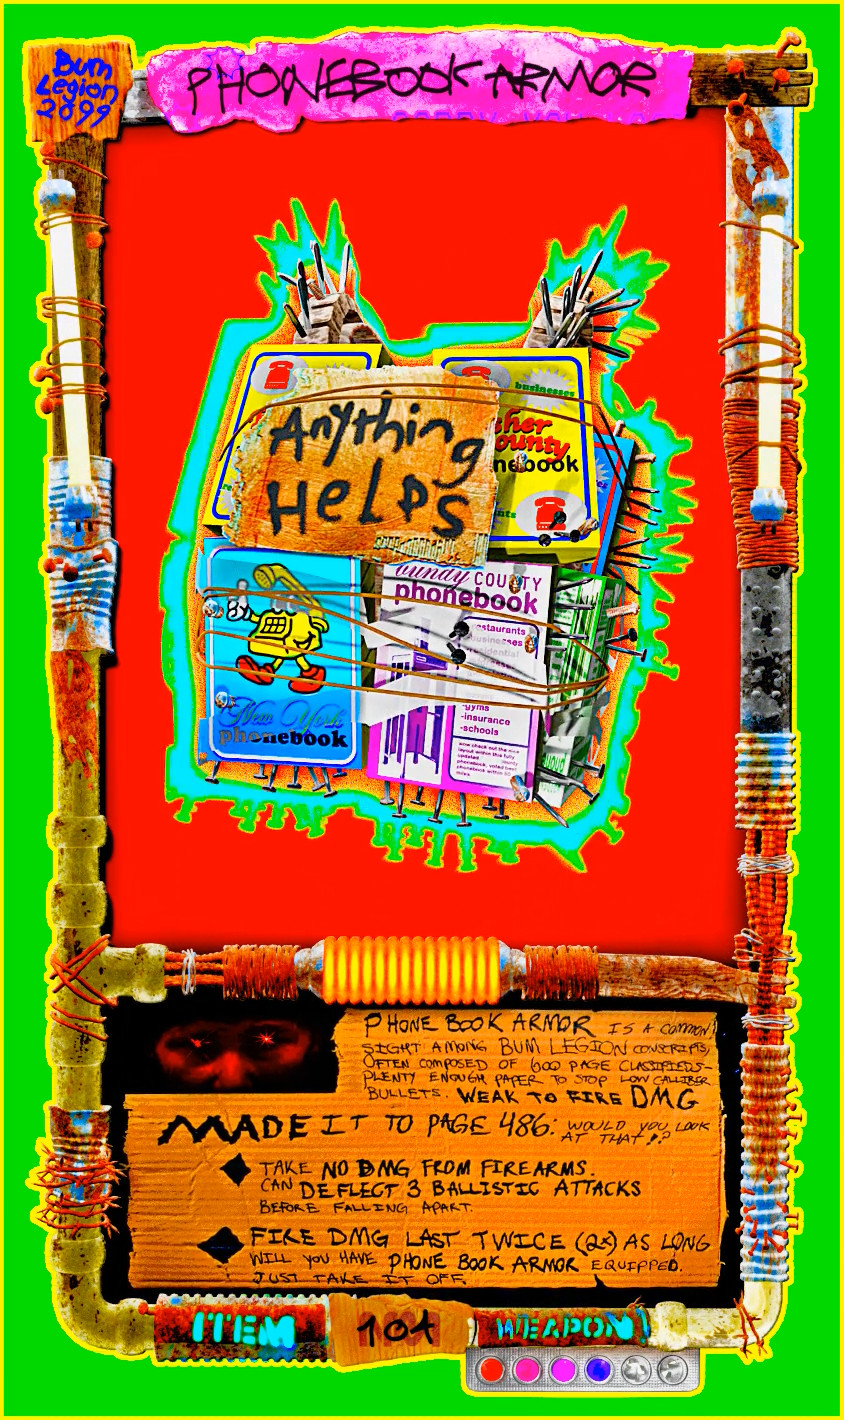 Bum
Legion
2899
PHONEBOOK ARMOR
businesses
Anything
Helps
county
phonebook
bundy COUNTY
phonebook
restaurants
businesses
residential
-gyms
-insurance
-schools
wow check out the nice
layout within this fully
updated
phonebook, voted best
phonebook within 50
miles.
New York
phonebook
PHONE BOOK ARMOR IS A COMMON
SIGHT AMONG BUM LEGION CONSCRIPTS,
OFTEN COMPOSED OF 600 PAGE CLASSIFIEDS-
PLENTY ENOUGH PAPER TO STOP LOW CALLIBER
BULLETS. WEAK TO FIRE DMG
MADE IT TO PAGE 486: WOULD YOU LOOK
AT THAT!?
TAKE NO DMG FROM FIREARMS.
CAN DEFLECT 3 BALLISTIC ATTACKS
BEFORE FALLING APART.
FIRE DMG LAST TWICE (2x) AS LONG
WILL YOU HAVE PHONE BOOK ARMOR EQUIPPED.
JUST TAKE IT OFF.
ITEM
104
WEAPON